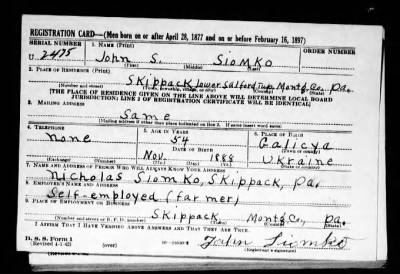 REGISTRATION CARD—(Men born on or after April 28, 1877 and on or before February 16, 1897)
SERIAL NUMBER 1. NAME (Print) ORDER NUMBER
U 2475 John S. Siomko
(First) (Middle) (Last)
2. PLACE OF RESIDENCE (Print)
Skippack Lower Salford Twp. Montg. Co. Pa.
(Number and street) (Town, township, village, or city) (County) (State)
[THE PLACE OF RESIDENCE GIVEN ON THE LINE ABOVE WILL DETERMINE LOCAL BOARD
JURISDICTION; LINE 2 OF REGISTRATION CERTIFICATE WILL BE IDENTICAL]
3. MAILING ADDRESS
Same
[Mailing address if other than place indicated on line 2. If same insert word same]
4. TELEPHONE 5. AGE IN YEARS 6. PLACE OF BIRTH
none 54 Galicya
DATE OF BIRTH (Town or county)
Nov. 1888 Ukraine
(Exchange) (Number) (Mo.) (Day) (Yr.) (State or country)
7. NAME AND ADDRESS OF PERSON WHO WILL ALWAYS KNOW YOUR ADDRESS
Nicholas Siomko, Skippack, Pa.
8. EMPLOYER'S NAME AND ADDRESS
Self-employed (farmer)
9. PLACE OF EMPLOYMENT OR BUSINESS
Skippack Montg. Co., Pa.
(Number and street or R. F. D. number) (Town) (County) (State)
I AFFIRM THAT I HAVE VERIFIED ABOVE ANSWERS AND THAT THEY ARE TRUE.
D. S. S. Form 1
(Revised 4-1-42) (over) John Siomko